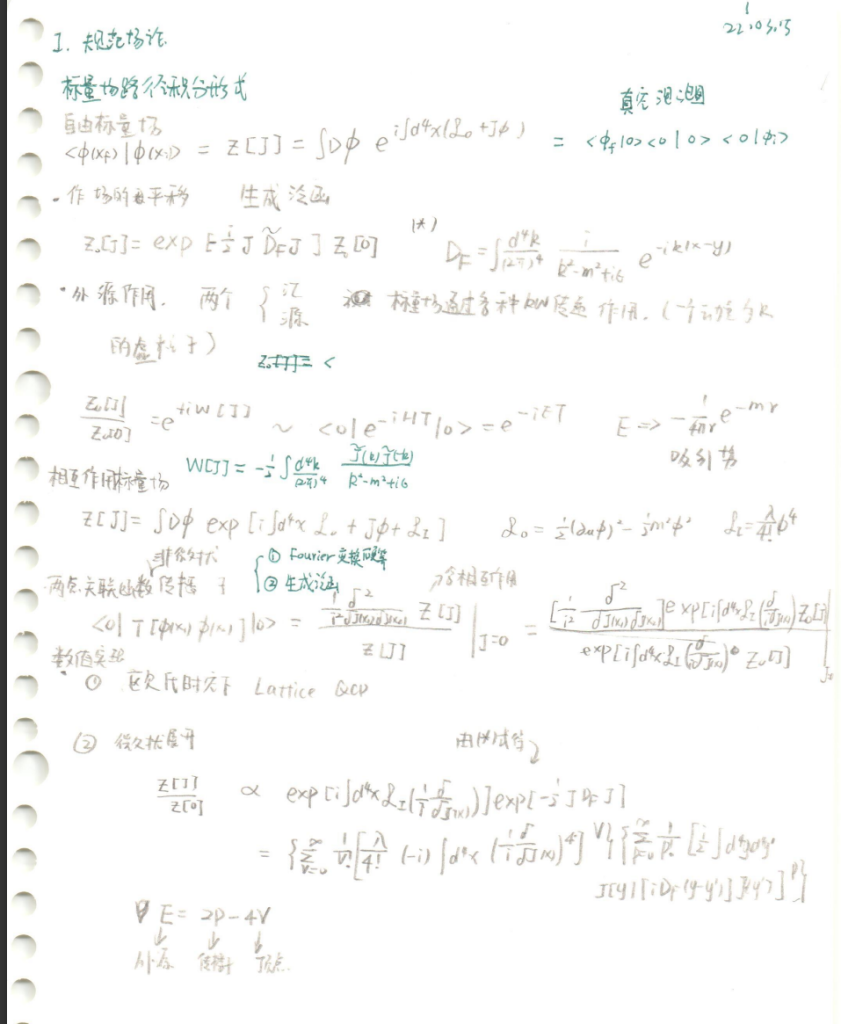 22.03.15
I. 规范场论
标量场路径积分形式
自由标量场
真空泡泡图
<φ(x_f)|φ(x_i)> = Z[J] = ∫Dφ e^{i∫d⁴x(ℒ₀+Jφ)} = <φ_f|0><0|0><0|φ_i>
· 作场的平移 生成泛函
Z₀[J] = exp[-i/2 J D̃_F J] Z₀[0] (*) D_F = ∫ d⁴k/(2π)⁴ i/(k²-m²+iε) e^{-ik(x-y)}
· 外源作用. 两个 { 汇 源 标量场通过各种k传递作用. (一个动量为k
的虚粒子)
Z₀[J]/Z₀[0] = e^{+iW[J]} ~ <0|e^{-iHT}|0> = e^{-iET} E => -1/4πr e^{-mr}
吸引势
W[J] = -1/2 ∫ d⁴k/(2π)⁴ J̃(k)J̃(-k)/(k²-m²+iε)
相互作用标量场
Z[J] = ∫Dφ exp[i∫d⁴x ℒ₀+Jφ+ℒ_I] ℒ₀ = 1/2(∂_μφ)² - 1/2m²φ² ℒ_I = λ/4! φ⁴
非微扰 { ① Fourier变换
② 生成泛函
两点关联函数 传播子 含相互作用
<0|T[φ(x₁)φ(x₂)]|0> = 1/i² δ²/δJ(x₁)δJ(x₂) Z[J] / Z[J] |_{J=0} = [1/i² δ²/δJ(x₁)δJ(x₂)] exp[i∫d⁴x ℒ_I(δ/iδJ(x))Z₀[J] / exp[i∫d⁴x ℒ_I(δ/iδJ(x))] Z₀[J] |_{J=}
数值实验
· ① 欧氏时空下 Lattice QCD
② 微扰展开
Z[J]/Z[0] ∝ exp[i∫d⁴x ℒ_I(1/i δ/δJ(x))] exp[-i/2 J D_F J]
= {∑_{V=0}^∞ 1/V! [λ/4! (-i) ∫d⁴x (1/i δ/δJ(x))⁴]^V} {∑_{P=0}^∞ 1/P! [i/2 ∫d⁴yd⁴y'
J(y)[iD_F(y-y')]J(y')]^P}
E = 2P-4V
外源 传播子 顶点